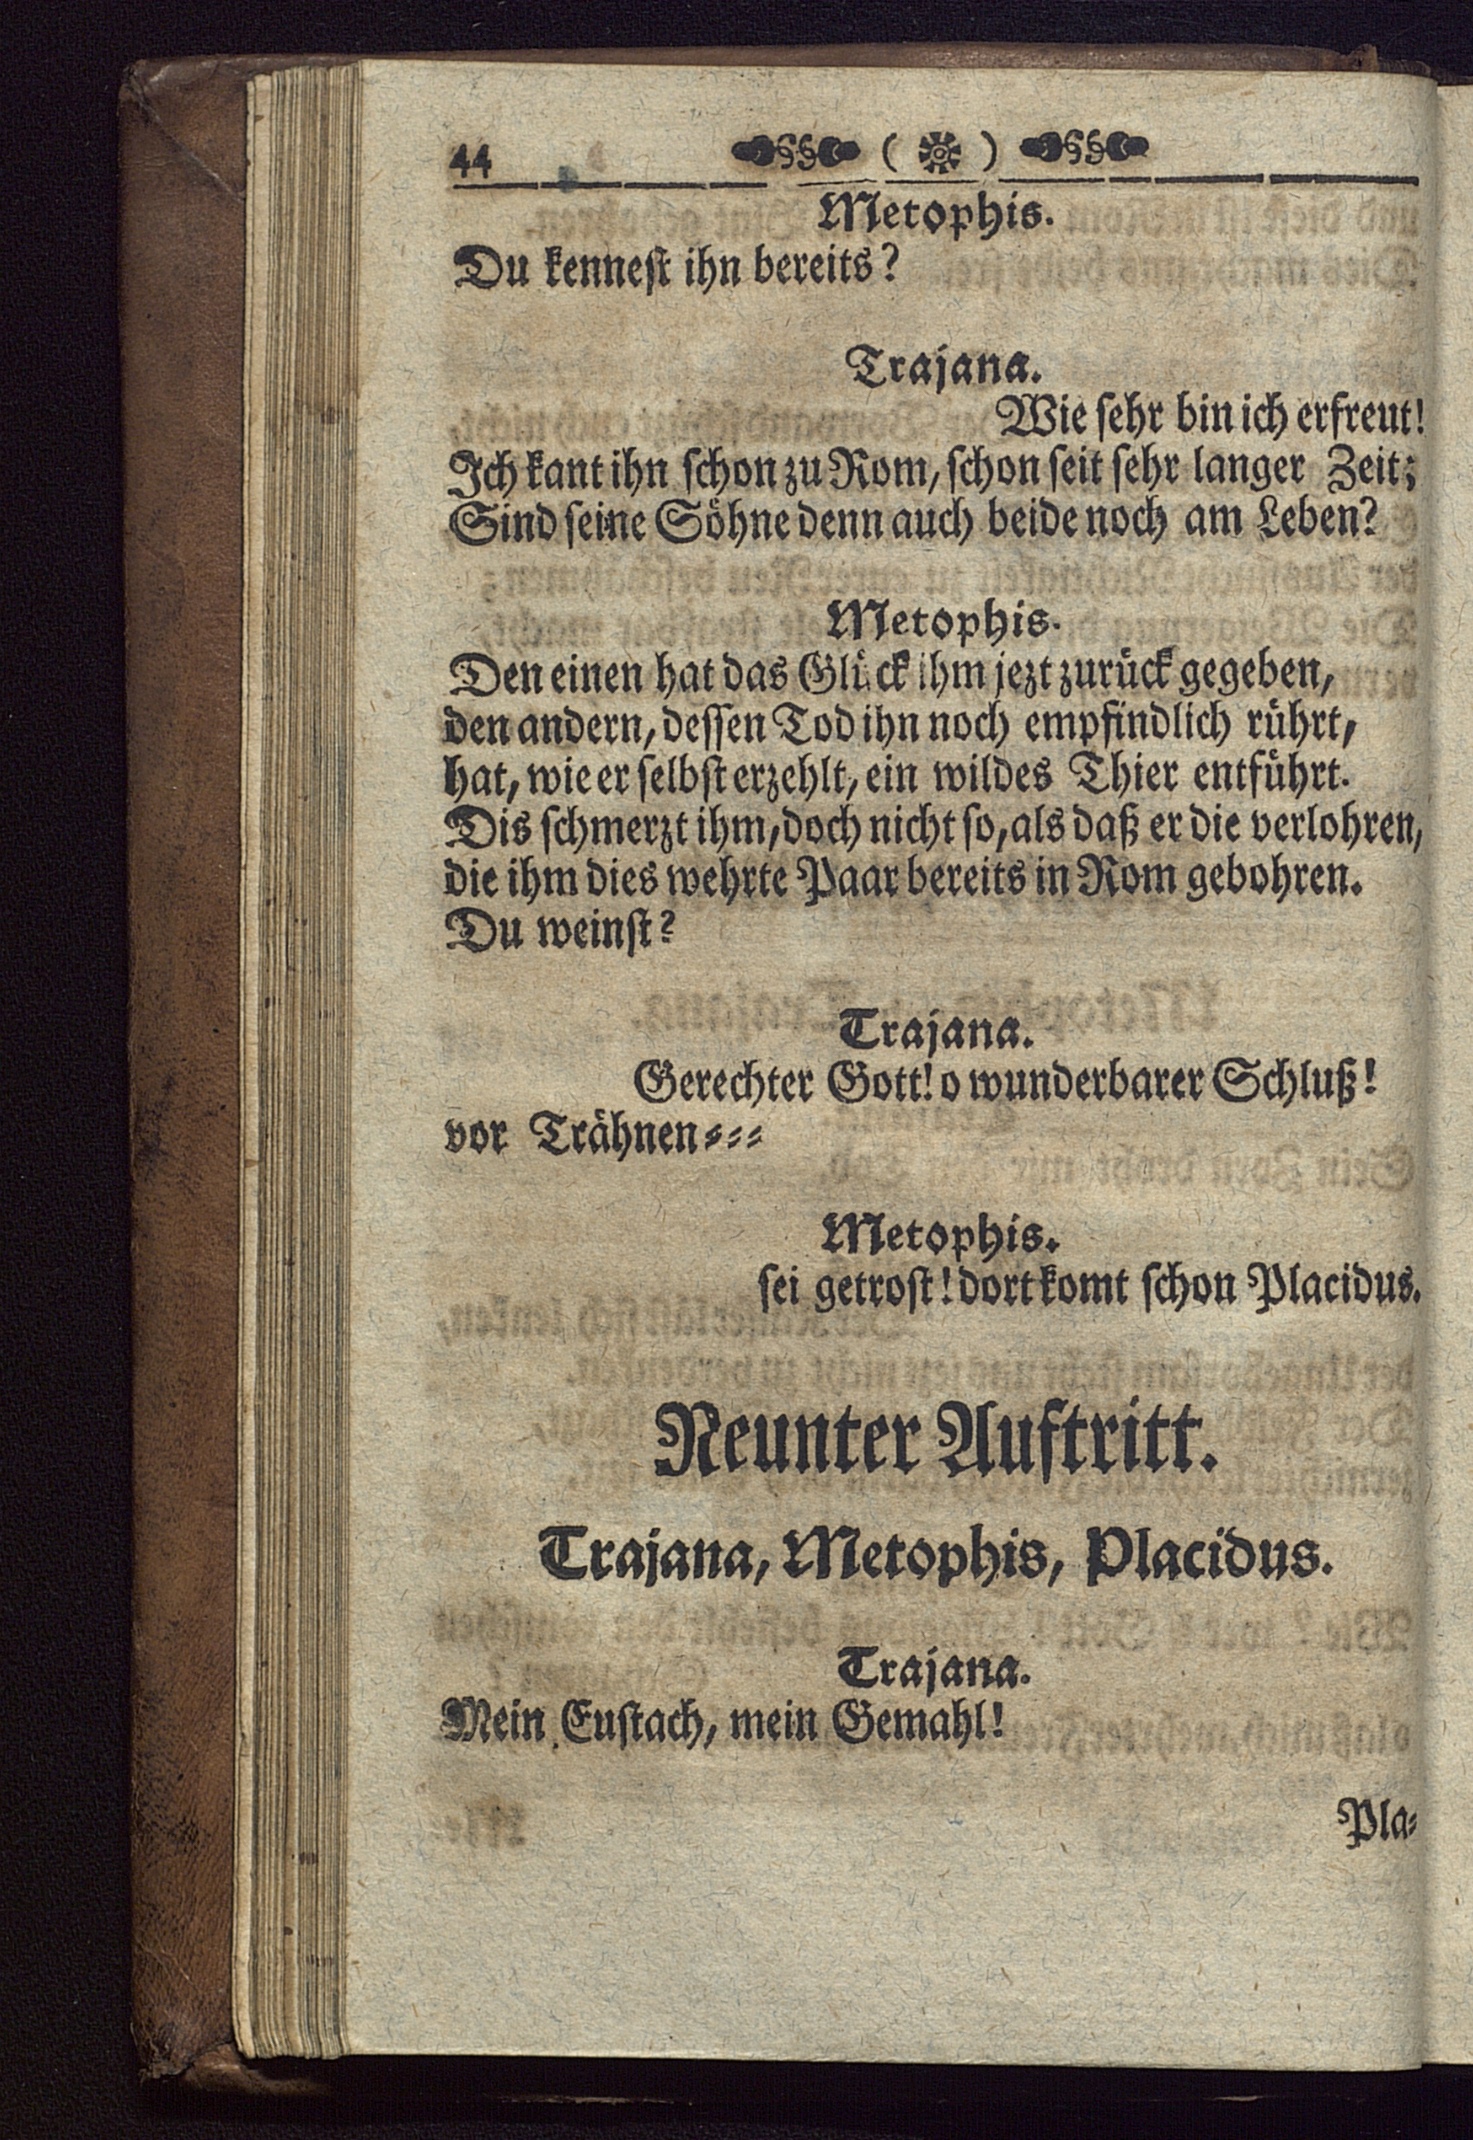 44
Metophis.
Du kennest ihn bereits?
Trajana.
Wie sehr bin ich erfreut!
Ich kant ihn schon zu Rom, schon seit sehr langer Zeit;
Sind seine Söhne denn auch beide noch am Leben?
Metophis.
Den einen hat das Glück ihm jezt zurück gegeben,
den andern, dessen Tod ihn noch empfindlich rührt,
hat, wie er selbst erzehlt, ein wildes Thier entführt.
Dis schmerzt ihm, doch nicht so, als daß er die verlohren,
die ihm dies wehrte Paar bereits in Rom gebohren.
Du weinst?
Trajana.
Gerechter Gott! o wunderbarer Schluß!
vor Trähnen⸗⸗⸗
Metophis.
sei getrost! dort komt schon Placidus.
Neunter Auftritt.
Trajana, Metophis, Placidus.
Trajana.
Mein Eustach, mein Gemahl!
Pla⸗